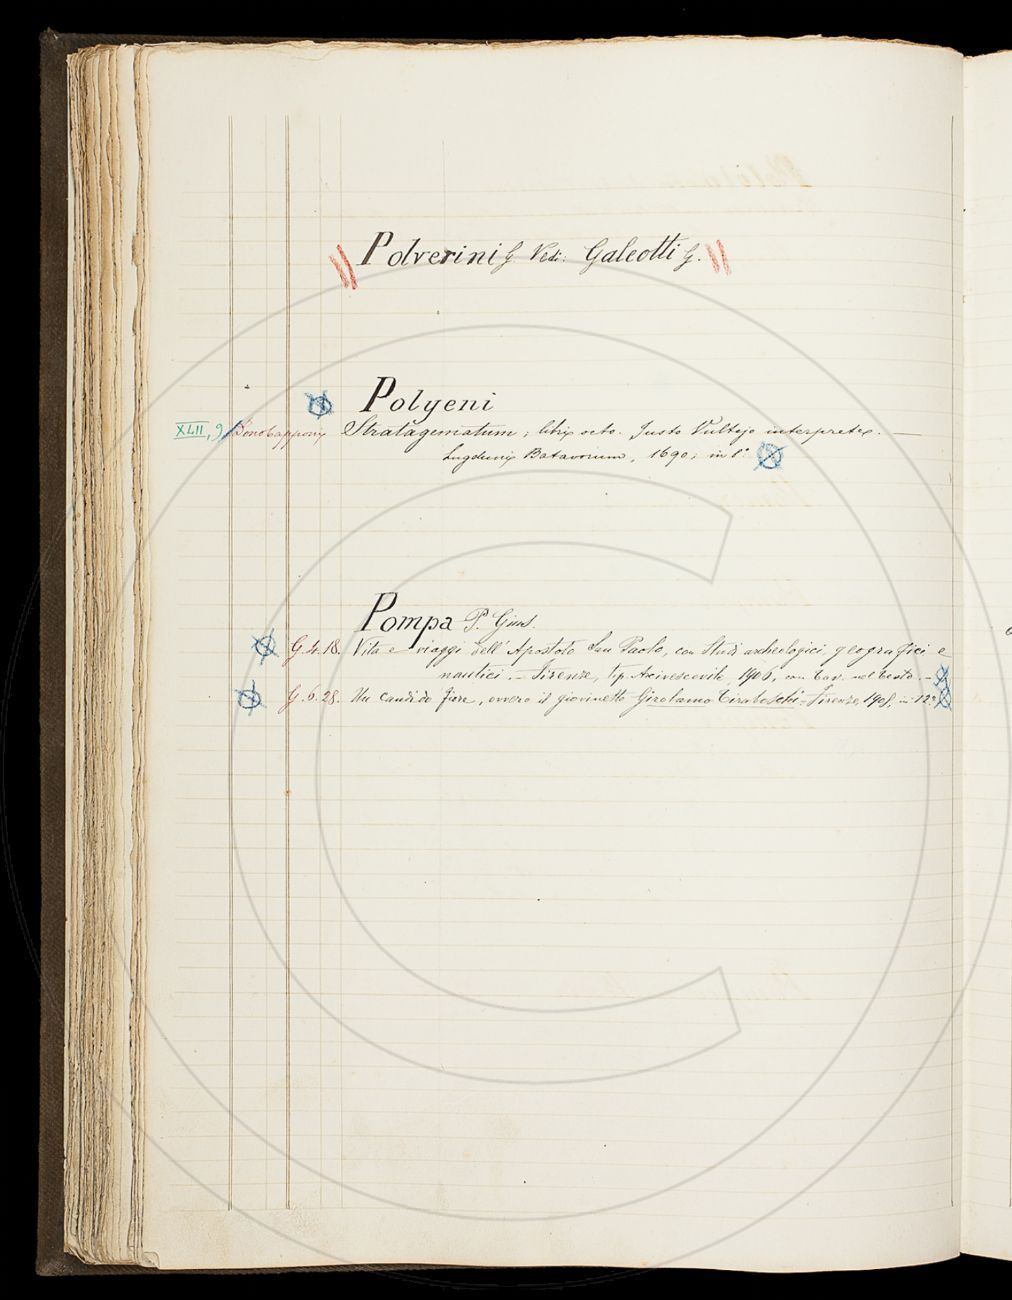 Polverini G Vedi: Galeotti G.
Polyeni
XLII, 9 Stratagematum; libri octo. Justo Vultejo interprete.
Lugduni Batavorum, 1690; in 8°
Pompa P. Gius.
G.4.18. Vita e viaggi dell'Apostolo San Paolo, con Studi archeologici, geografici e
nautici. - Firenze, Tip. Arcivescovile, 1906, con tav. nel testo. -
G.6.28. Un candido fiore, ovvero il giovinetto Girolamo Tiraboschi - Firenze, in 12°